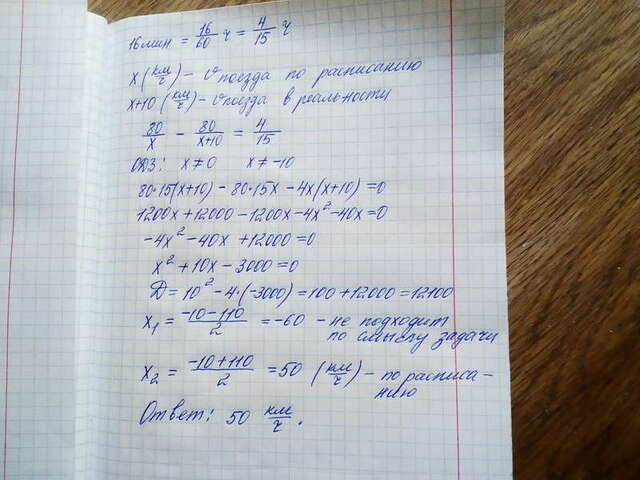 16мин = 16/60 ч = 4/15 ч
x (км/ч) - v поезда по расписанию
x+10 (км/ч) - v поезда в реальности
80/x - 80/x+10 = 4/15
ОДЗ: x≠0 x≠-10
80·15(x+10) - 80·15x - 4x(x+10) = 0
1200x+12000-1200x-4x²-40x=0
-4x²-40x+12000=0
x²+10x-3000=0
D=10²-4·(-3000)=100+12000=12100
x₁ = -10-110/2 = -60 - не подходит
по смыслу задачи
x₂ = -10+110/2 = 50 (км/ч) - по расписа-
нию
Ответ: 50 км/ч.